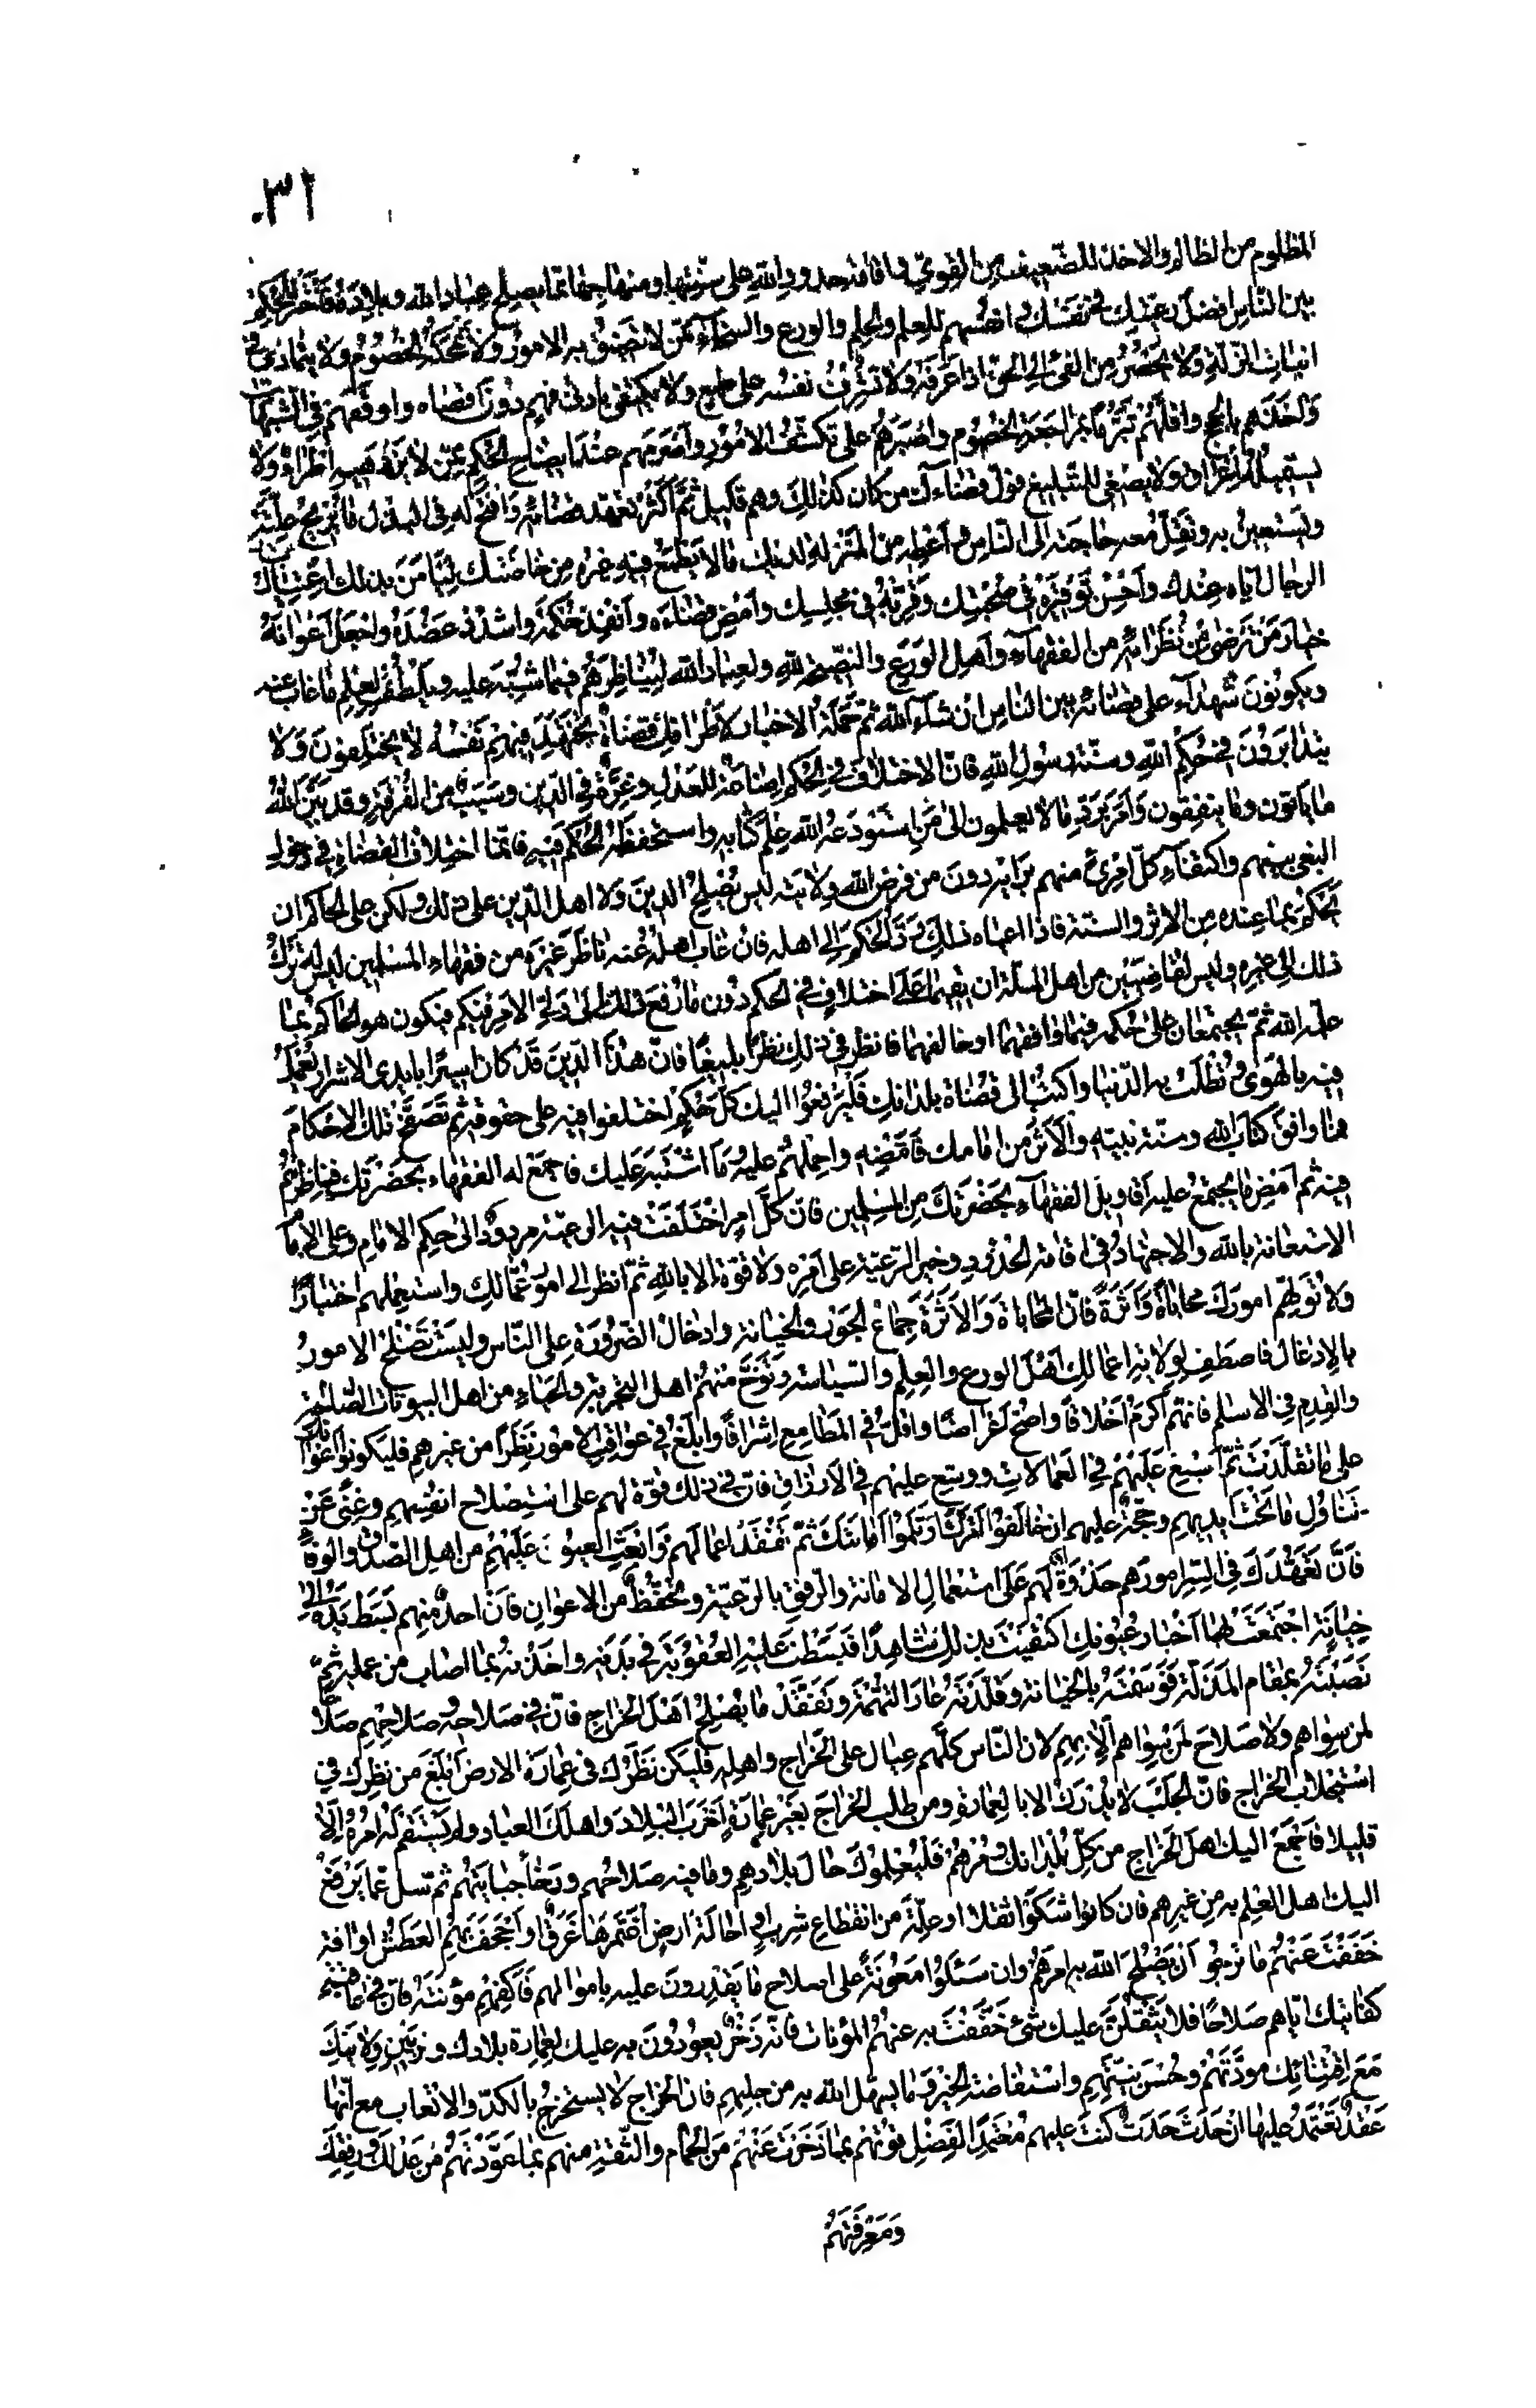 ٣١٠
المظلوم من الظالم والاخذ للضعيف من القوي واقامة حدود الله على سنتها ومنهاجها مما يصلح عباد الله وبلاده فاختر للحكم
بين الناس افضل رعيتك في نفسك وانفسهم للعلم والحلم والورع والسخاء ممن لا تضيق به الامور ولا تمحكه الخصوم ولا يتمادى في
اثبات الزلة ولا يحصر من الفيء الى الحق اذا عرفه ولا تشرف نفسه على طمع ولا يكتفي بادنى فهم دون اقصاه واوقفهم في الشبهات
واخذهم بالحجج واقلهم تبرما بمراجعة الخصوم واصبرهم على تكشف الامور واصرمهم عند ايضاح الحكم ممن لا يزدهيه اطراء ولا
يستميله اغراق ولا يصغى للتبليغ فول قضاءك من كان كذلك وهم قليل ثم اكثر تعهد قضائه وافتح له في البذل ما يزيح علته
ويستعين به وتقل معه حاجته الى الناس واعطه من المنزلة لديك ما لا يطمع فيه غيره من خاصتك ليامن بذلك اغتياب
الرجال اياه عندك واحسن توقيره في صحبتك وقربه في مجلسك وامض قضاءه وانفذ حكمه واشدد عضده واجعل اعوانه
خيار من ترضى من نظرائه من الفقهاء واهل الورع والنصيحة لله ولعباد الله ليناظرهم فيما شبه عليه ويلطف لعلم ما غاب عنه
ويكونون شهداء على قضائه بين الناس ان شاء الله ثم حملة الاخبار لاطرافك قضاة تجتهد فيهم نفسه لا يختلفون ولا
يتدابرون في حكم الله وسنة رسول الله فان الاختلاف في الحكم اضاعة للعدل وغرة في الدين وسبب من الفرقة وقد بين الله
ما ياتون وما ينفقون وامر برد ما لا يعلمون الى من استودعه الله علم كتابه واستحفظه الحكم فيه فانما اختلاف القضاة في دخول
البغي بينهم واكتفاء كل امرئ منهم برايه دون من فرض الله ولايته ليس يصلح الدين ولا اهل الدين على ذلك ولكن على الحاكم ان
يحكم بما عنده من الاثر والسنة فاذا اعياه ذلك رد الحكم الى اهله فان غاب اهله عنه ناظر غيره من فقهاء المسلمين ليس له ترك
ذلك الى غيره وليس لقاضيين من اهل الملة ان يقيما على اختلاف في الحكم دون ما رفع ذلك الى ولي الامر فيكم فيكون هو الحاكم بما
علمه الله ثم يجتمعان على حكمه فيما وافقهما او خالفهما فانظر في ذلك نظرا بليغا فان هذا الدين قد كان اسيرا بايدي الاشرار يعمل
فيه بالهوى وتطلب به الدنيا واكتب الى قضاة بلدانك فليرفعوا اليك كل حكم اختلفوا فيه على حقوقه ثم تصفح تلك الاحكام
فما وافق كتاب الله وسنة نبيه والاثر من امامك فامضه واحملهم عليه وما اشتبه عليك فاجمع له الفقهاء بحضرتك فناظرهم
فيه ثم امض ما يجتمع عليه اقاويل الفقهاء بحضرتك من المسلمين فان كل امر اختلفت فيه الرعية مردود الى حكم الامام وعلى الامام
الاستعانة بالله والاجتهاد في اقامة الحدود وجبر الرعية على امره ولا قوة الا بالله ثم انظر الى امور عمالك واستعملهم اختبارا
ولا تولهم امورك محاباة واثرة فان المحاباة والاثرة جماع الجور والخيانة وادخال الضرورة على الناس وليست تصلح الامور
بالادغال فاصطف لولاية اعمالك اهل الورع والعلم والسياسة وتوخ منهم اهل التجربة والحياء من اهل البيوتات الصالحة
والقدم في الاسلم فانهم اكرم اخلاقا واصح اغراضا واقل في المطامع اشرافا وابلغ في عواقب الامور نظرا من غيرهم فليكونوا اعوانك
على ما تقلدت ثم اسبغ عليهم في العمالات ووسع عليهم في الارزاق فان في ذلك قوة لهم على استصلاح انفسهم وغنى عن
تناول ما تحت ايديهم وحجة عليهم ان خالفوا امرك او ثلموا امانتك ثم تفقد اعمالهم وابعث العيون عليهم من اهل الصدق والوفاء
فان تعهدك في السر امورهم حدوة لهم على استعمال الامانة والرفق بالرعية وتحفظ من الاعوان فان احد منهم بسط يده الى
خيانة اجتمعت بها اخبار عيونك اكتفيت بذلك شاهدا فبسطت عليه العقوبة في بدنه واخذته بما اصاب من عمله ثم
نصبته بمقام المذلة فوسمته بالخيانة وقلدته عار التهمة وتفقد ما يصلح اهل الخراج فان في صلاحه وصلاحهم صلاحا
لمن سواهم ولا صلاح لمن سواهم الا بهم لان الناس كلهم عيال على الخراج واهله فليكن نظرك في عمارة الارض ابلغ من نظرك في
استجلاب الخراج فان الجلب لا يدرك الا بالعمارة ومن طلب الخراج بغير عمارة اخرب البلاد واهلك العباد ولم يستقم له امره الا
قليلا فاجمع اليك اهل الخراج من كل بلدانك ومرهم فليعلموك حال بلادهم وما فيه صلاحهم ورخاء جبايتهم ثم سل عما يرفع
اليك اهل العلم به من غيرهم فان كانوا شكوا ثقلا او علة من انقطاع شرب او احالة ارض اغتمرها غرق او اجحف بهم العطش او آفة
خففت عنهم ما ترجو ان يصلح الله به امرهم وان سئلوا معونة على اصلاح ما يقدرون عليه باموالهم فاكفهم مؤنته فان في عاقبة
كفايتك اياهم صلاحا فلا يثقلن عليك شئ خففت به عنهم المؤنات فانه ذخر يعودون به عليك لعمارة بلادك وتزيين ولايتك
مع اقتنائك مودتهم وحسن نيتهم واستفاضة الخير وما يسهل الله به من جلبهم فان الخراج لا يستخرج بالكد والاتعاب مع انها
عقد تعتمد عليها ان حدث حدث كنت عليهم معتمدا لفضل قوتهم بما ذخرت عنهم من الجمام والثقة منهم بما عودتهم من عدلك ورفقك
ومعرفتهم